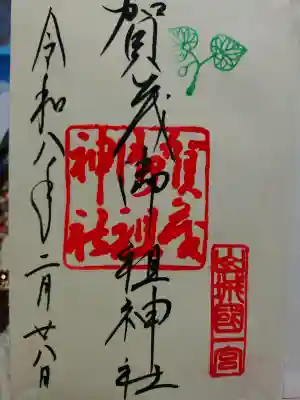 山城國一宮
賀茂御祖神社
賀茂御祖神社
令和八年二月廿八日